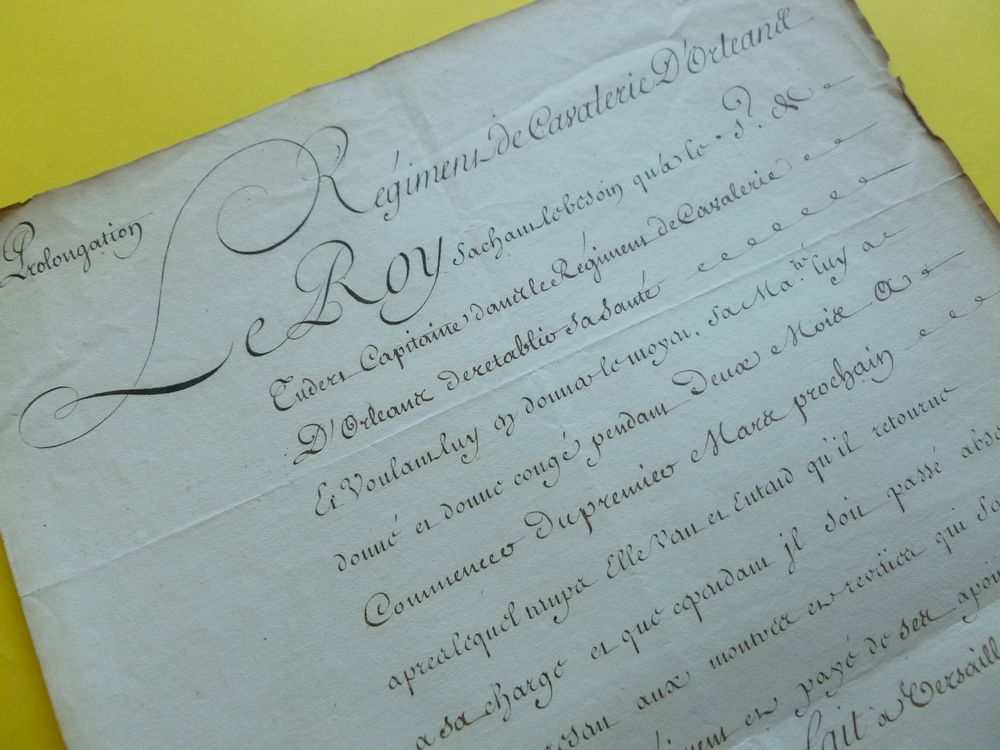 Régiment de Cavalerie D'Orleans
Prolongation
Le Roy sachant le besoin qu'a le Sr. de
Capitaine dans le Régiment de Cavalerie
D'Orleans de retablir sa santé
Et Voulant luy y donner le moyen, Sa Ma.té luy a
donné et donne congé pendant Deux Mois a
Commencer Du premier Mars prochain
apres lequel temps Elle Veut et Entend qu'il retourne
a sa charge et que cependant jl soit passé abse
aux montres et reveües qui se
en payé de ses apoin
fait à Versaill